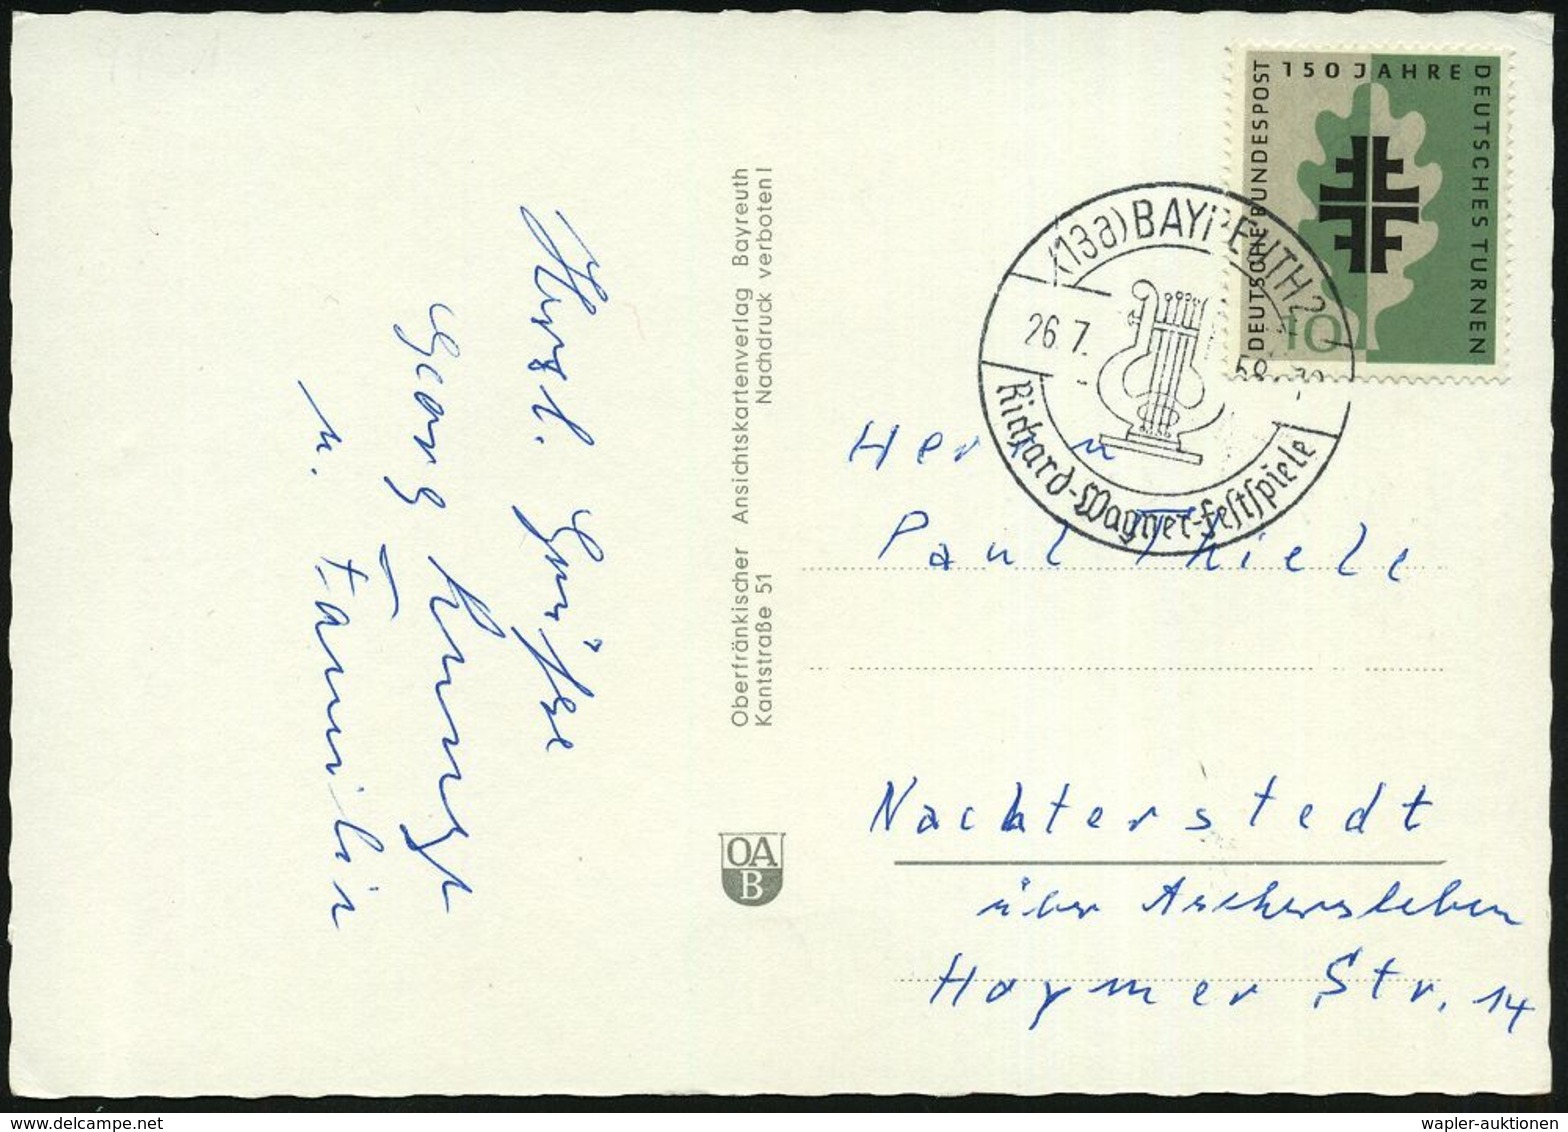 Herzl. Grüße
Georg Kunze
u. Familie
Oberfränkischer Ansichtskartenverlag Bayreuth
Kantstraße 51 Nachdruck verboten!
OA
B
150 JAHRE
DEUTSCHES TURNEN
DEUTSCHE BUNDESPOST
10
(13a) BAYREUTH 2
26.7.
Richard-Wagner-Festspiele
Herrn
Paul Thiele
Nachterstedt
über Aschersleben
Hoymer Str. 14
wapler-auktionen